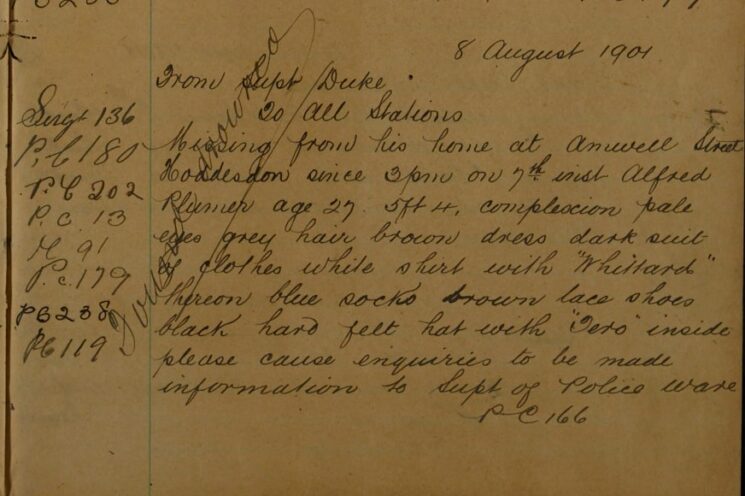 8 August 1901
From Supt Duke
To All Stations
Missing from his home at Amwell Street
Hoddesdon since 3pm on 7th inst Alfred
Plumer age 27. 5ft 4, complexion pale
eyes grey hair brown dress dark suit
of clothes white shirt with "Whittard"
thereon blue socks brown lace shoes
black hard felt hat with inside
please cause enquiries to be made
information to Supt of Police Ware
P C 166
Sergt 136
P.C 180
P.C 202
P.C. 13
91
P.C. 179
PC 238
PC 119
Found drowned